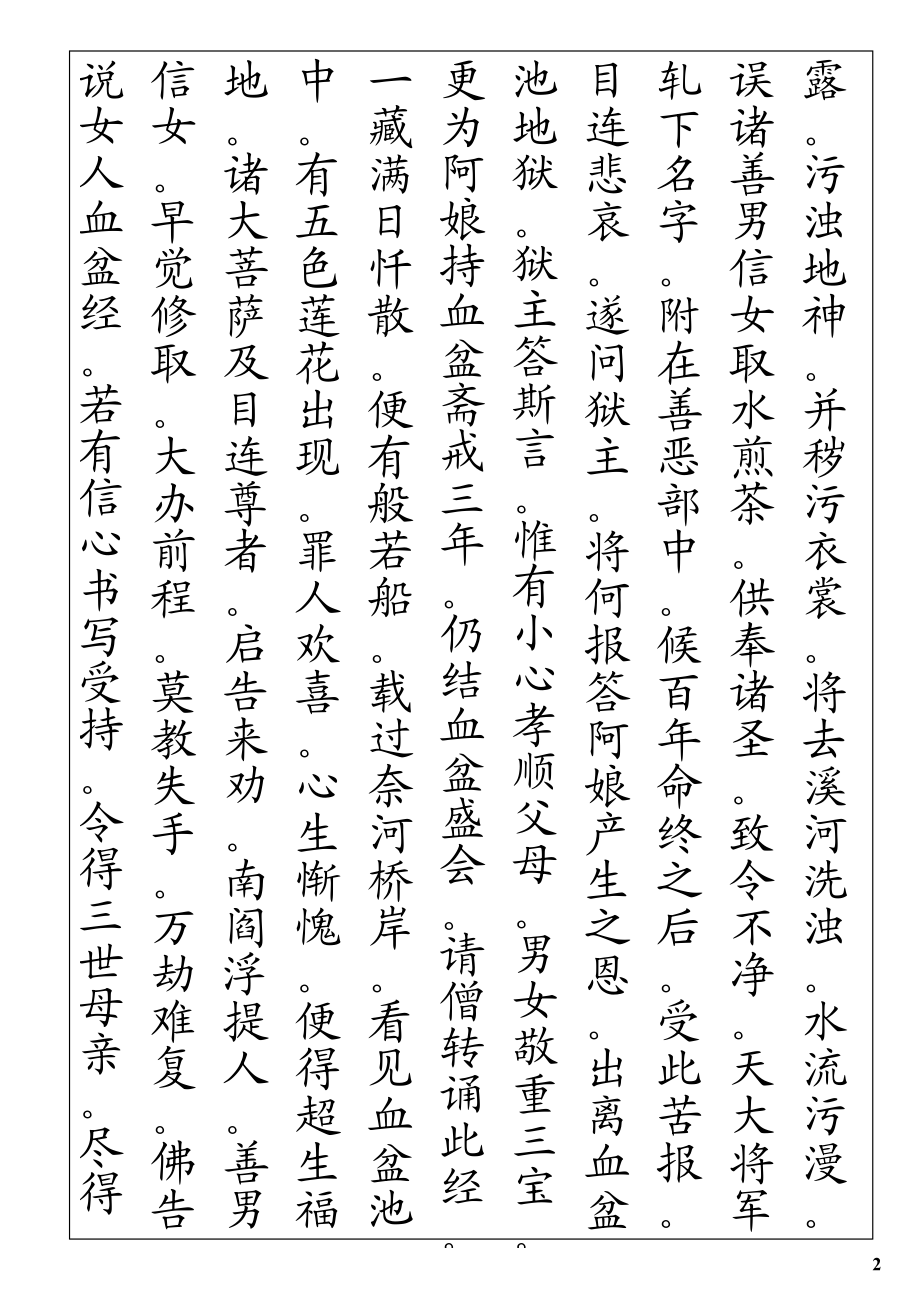 露。污浊地神。并秽污衣裳。将去溪河洗浊。水流污漫。
误诸善男信女取水煎茶。供奉诸圣。致令不净。天大将军
轧下名字。附在善恶部中。候百年命终之后。受此苦报。
目连悲哀。遂问狱主。将何报答阿娘产生之恩。出离血盆
池地狱。狱主答斯言。惟有小心孝顺父母。男女敬重三宝。
更为阿娘持血盆斋戒三年。仍结血盆盛会。请僧转诵此经。
一藏满日忏散。便有般若船。载过奈河桥岸。看见血盆池
中。有五色莲花出现。罪人欢喜。心生惭愧。便得超生福
地。诸大菩萨及目连尊者。启告来劝。南阎浮提人。善男
信女。早觉修取。大办前程。莫教失手。万劫难复。佛告
说女人血盆经。若有信心书写受持。令得三世母亲。尽得
2